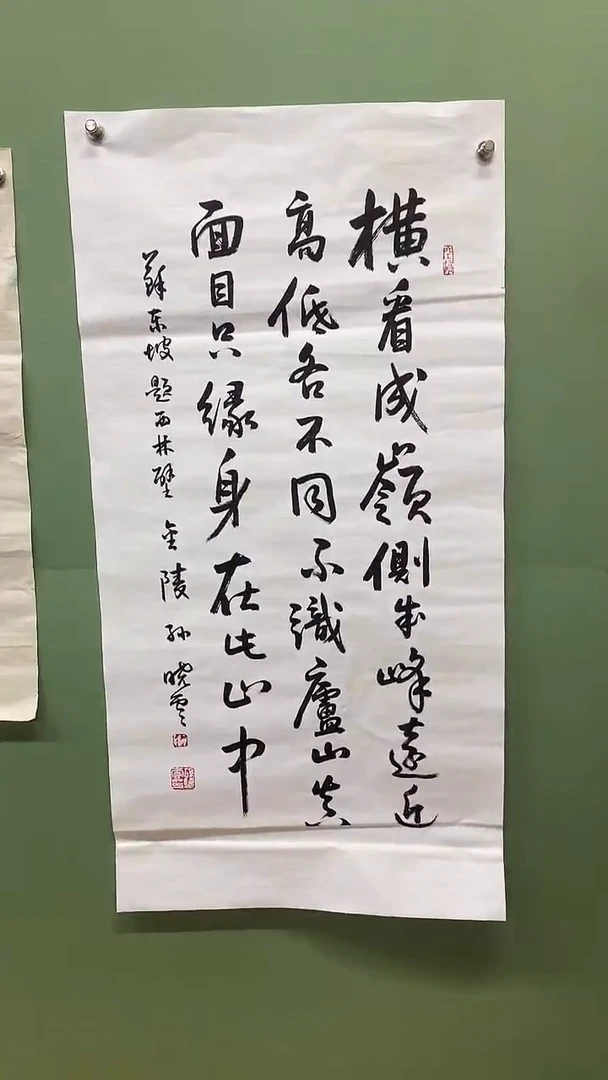 橫看成嶺側成峰遠近
高低各不同不識廬山真
面目只緣身在此山中
蘇東坡題西林壁 金陵孫曉雲